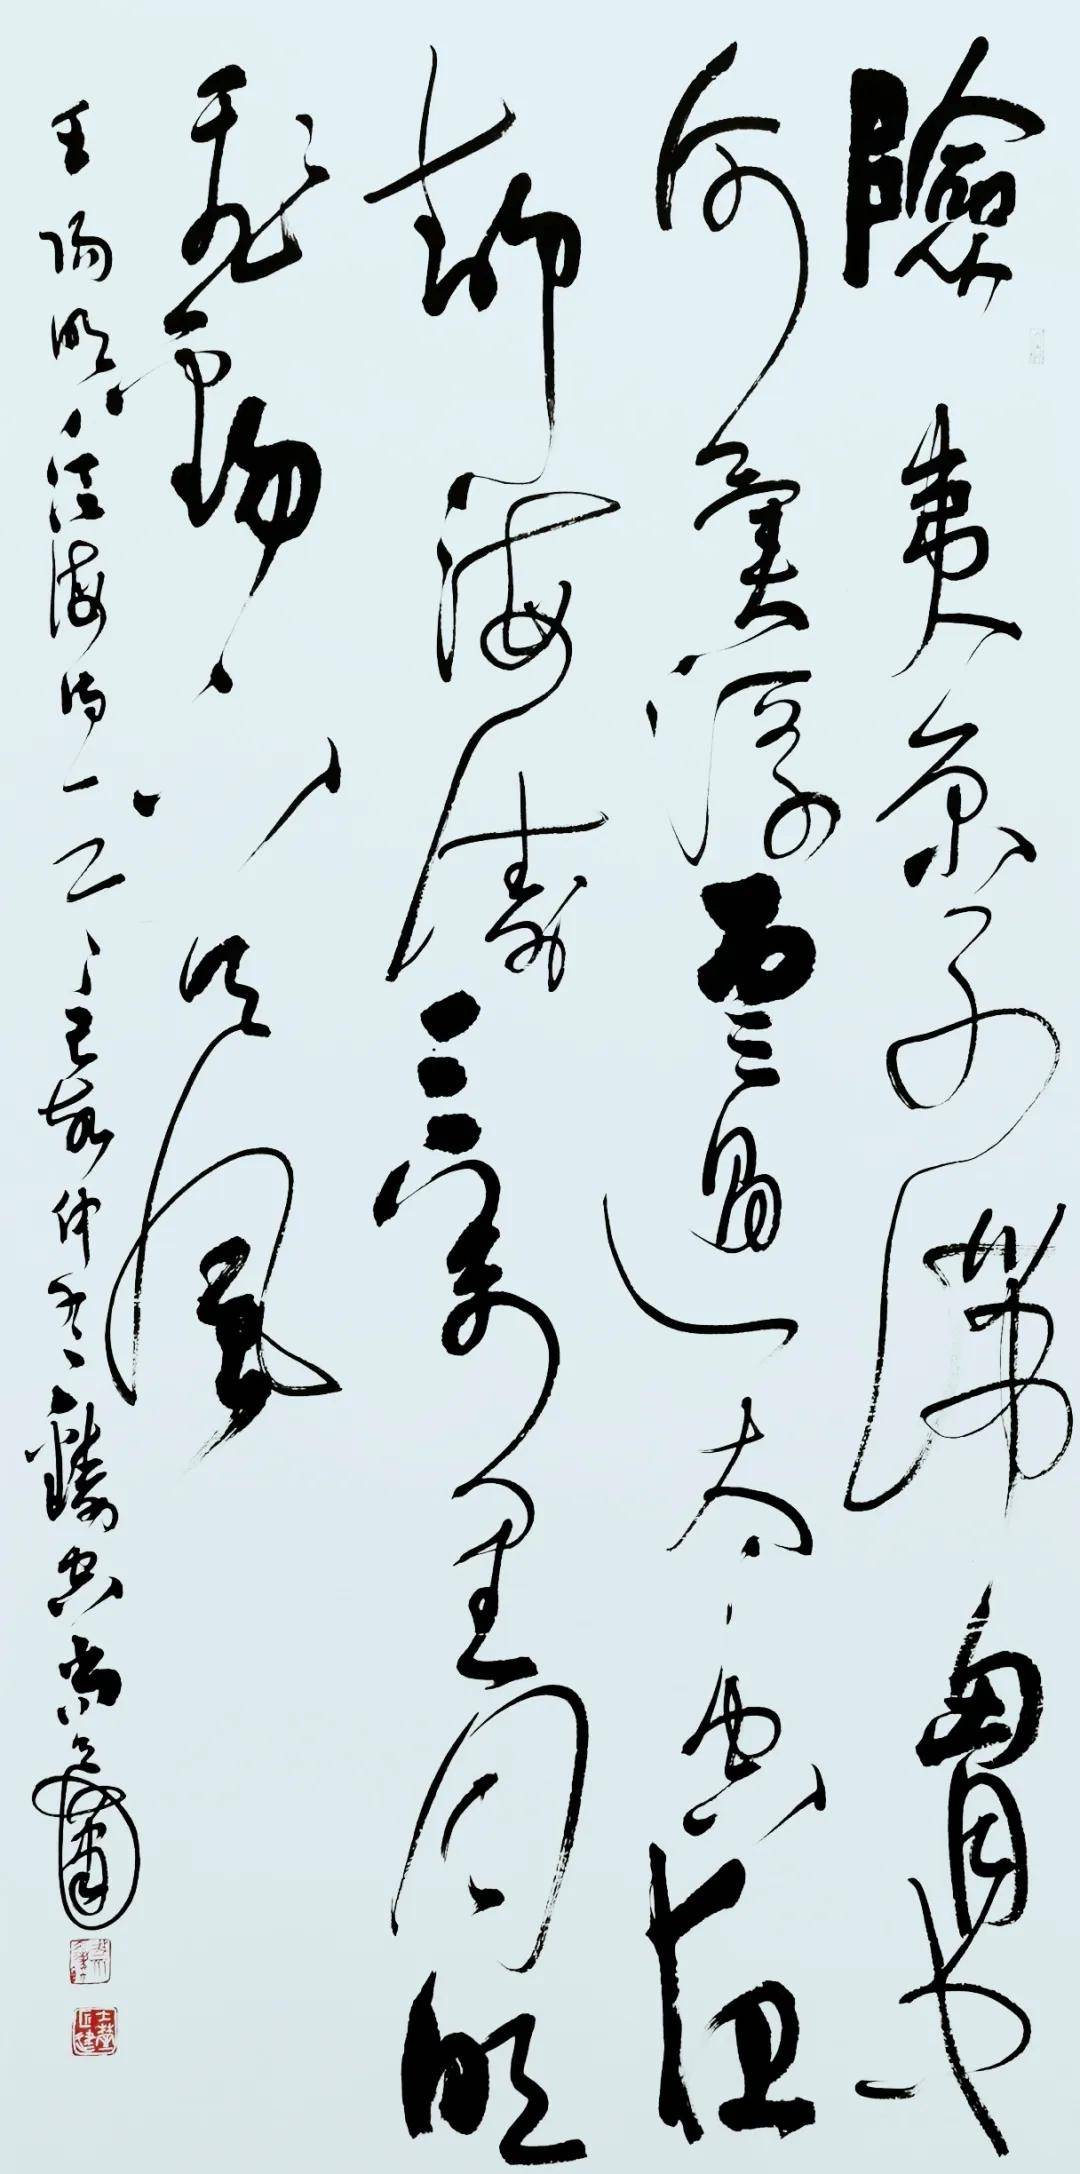 險夷原不滯胸中
何異浮雲過太空夜
靜海濤三萬里月明
飛錫下天風
王陽明泛海詩一首己亥仲冬